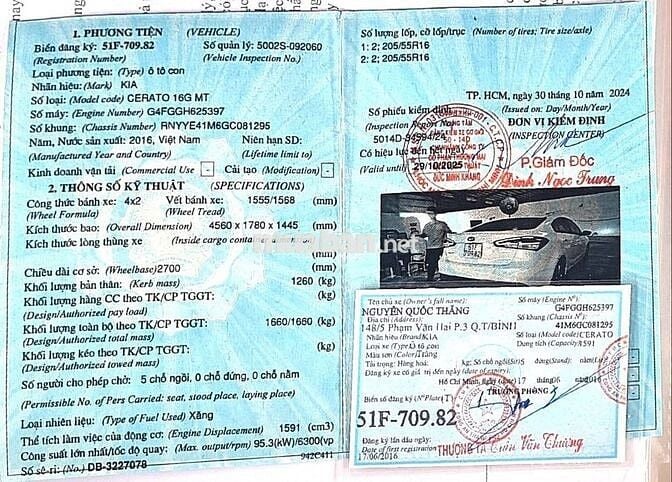 1. PHƯƠNG TIỆN (VEHICLE)
Biển đăng ký: 51F-709.82 Số quản lý: 5002S-092060
(Registration Number) (Vehicle Inspection No.)
Loại phương tiện: (Type) ô tô con
Nhãn hiệu: (Mark) KIA
Số loại: (Model code) CERATO 16G MT
Số máy: (Engine Number) G4FGGH625397
Số khung: (Chassis Number) RNYYE41M6GC081295
Năm, Nước sản xuất: 2016, Việt Nam Niên hạn SD:
(Manufactured Year and Country) (Lifetime limit to)
Kinh doanh vận tải (Commercial Use) - Cải tạo (Modification) -
2. THÔNG SỐ KỸ THUẬT (SPECIFICATIONS)
Công thức bánh xe: 4x2 Vết bánh xe: 1555/1568 (mm)
(Wheel Formula) (Wheel Tread)
Kích thước bao: (Overall Dimension) 4560 x 1780 x 1445 (mm)
Kích thước lòng thùng xe (Inside cargo container dimension)
(mm)
Chiều dài cơ sở: (Wheelbase) 2700 (mm)
Khối lượng bản thân: (Kerb mass) 1260 (kg)
Khối lượng hàng CC theo TK/CP TGGT: (kg)
(Design/Authorized pay load)
Khối lượng toàn bộ theo TK/CP TGGT: 1660/1660 (kg)
(Design/Authorized total mass)
Khối lượng kéo theo TK/CP TGGT: (kg)
(Design/Authorized towed mass)
Số người cho phép chở: 5 chỗ ngồi, 0 chỗ đứng, 0 chỗ nằm
(Permissible No. of Pers Carried: seat, stood place, laying place)
Loại nhiên liệu: (Type of Fuel Used) Xăng
Thể tích làm việc của động cơ: (Engine Displacement) 1591 (cm3)
Công suất lớn nhất/tốc độ quay: (Max. output/rpm) 95.3(kW)/6300(vp
Số sê-ri: (No.) DB-3227078 942C411
Số lượng lốp, cỡ lốp/trục (Number of Tires; Tire size/axle)
1: 2; 205/55R16
2: 2; 205/55R16
TP. HCM, ngày 30 tháng 10 năm 2024
(Issued on: Day/Month/Year)
Số phiếu kiểm định
(Inspection Report No)
5014D-94594/24
ĐƠN VỊ KIỂM ĐỊNH
(INSPECTION CENTER)
Có hiệu lực đến hết ngày
(Valid until)
29/10/2025
50 - 14D
ĐỨC MINH KHANG
P.Giám Đốc
Đinh Ngọc Trung
51F
709.82
Tên chủ xe (Owner's full name): Số máy (Engine Nº)
NGUYỄN QUỐC THẮNG G4FGGH625397
Địa chỉ (Address): Số khung (Chassis Nº)
148/5 Phạm Văn Hai P.3 Q.T/BÌNH 41M6GC081295
Nhãn hiệu (Brand) KIA Số loại (Model code) CERATO
Loại xe (Type) Ô tô con Dung tích (Capacity) 1591
Màu sơn (Color) Trắng
Tải trọng: Hàng hoá: kg; Số chỗ ngồi(Sit) 5 đứng(Stand): nằm(Lie)
Đăng ký xe có giá trị đến ngày (date of expiry)
Hồ Chí Minh, ngày 17 tháng 06 năm 2016
TRƯỞNG PHÒNG
Biển số đăng ký (Nº Plate)
51F-709.82
Đăng ký lần đầu ngày
Date of first registration
17/06/2016
THƯỢNG TÁ Trần Văn Thương